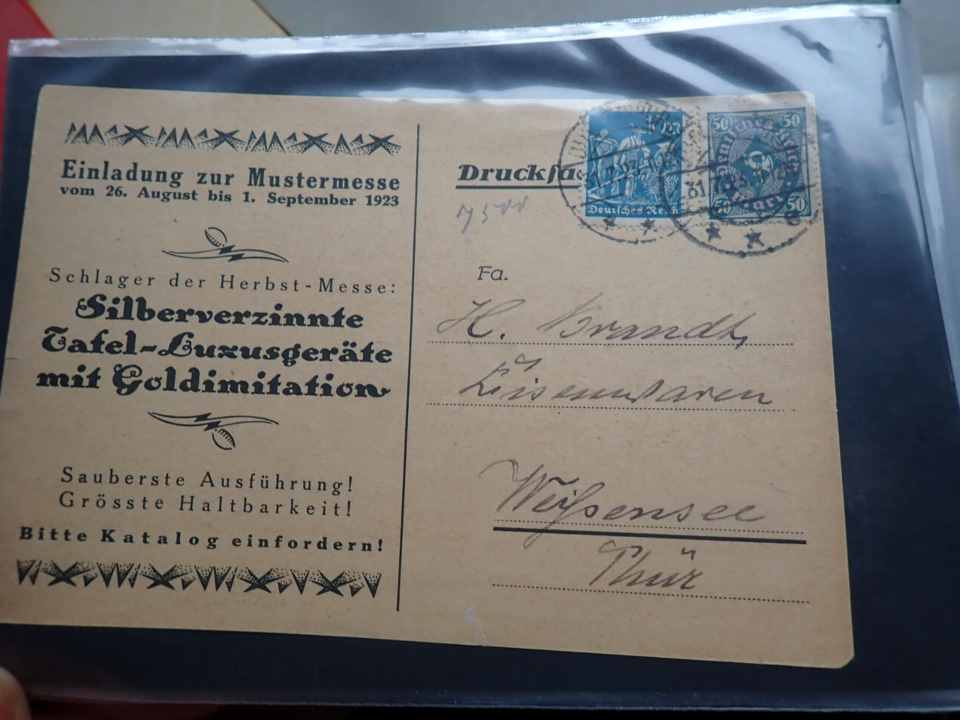 Einladung zur Mustermesse
vom 26. August bis 1. September 1923
Schlager der Herbst-Messe:
Silberverzinnte
Tafel-Luxusgeräte
mit Goldimitation
Sauberste Ausführung!
Grösste Haltbarkeit!
Bitte Katalog einfordern!
Deutsches Reich
50 50
50 50
31
Fa.
H. Brandt,
Eisenwaren
Weißensee
Thür